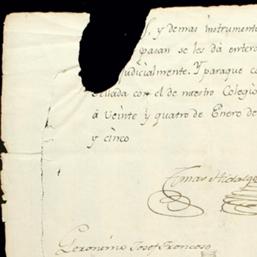 , y demas instrumento
pasan se les dà entera
judicialmente. Y paraque co
Sellada con el de nuestro Colegio
à Veinte y quatro de Enero de
y cinco
Tomas Hidalgo
Geronimo Josef Froncoso